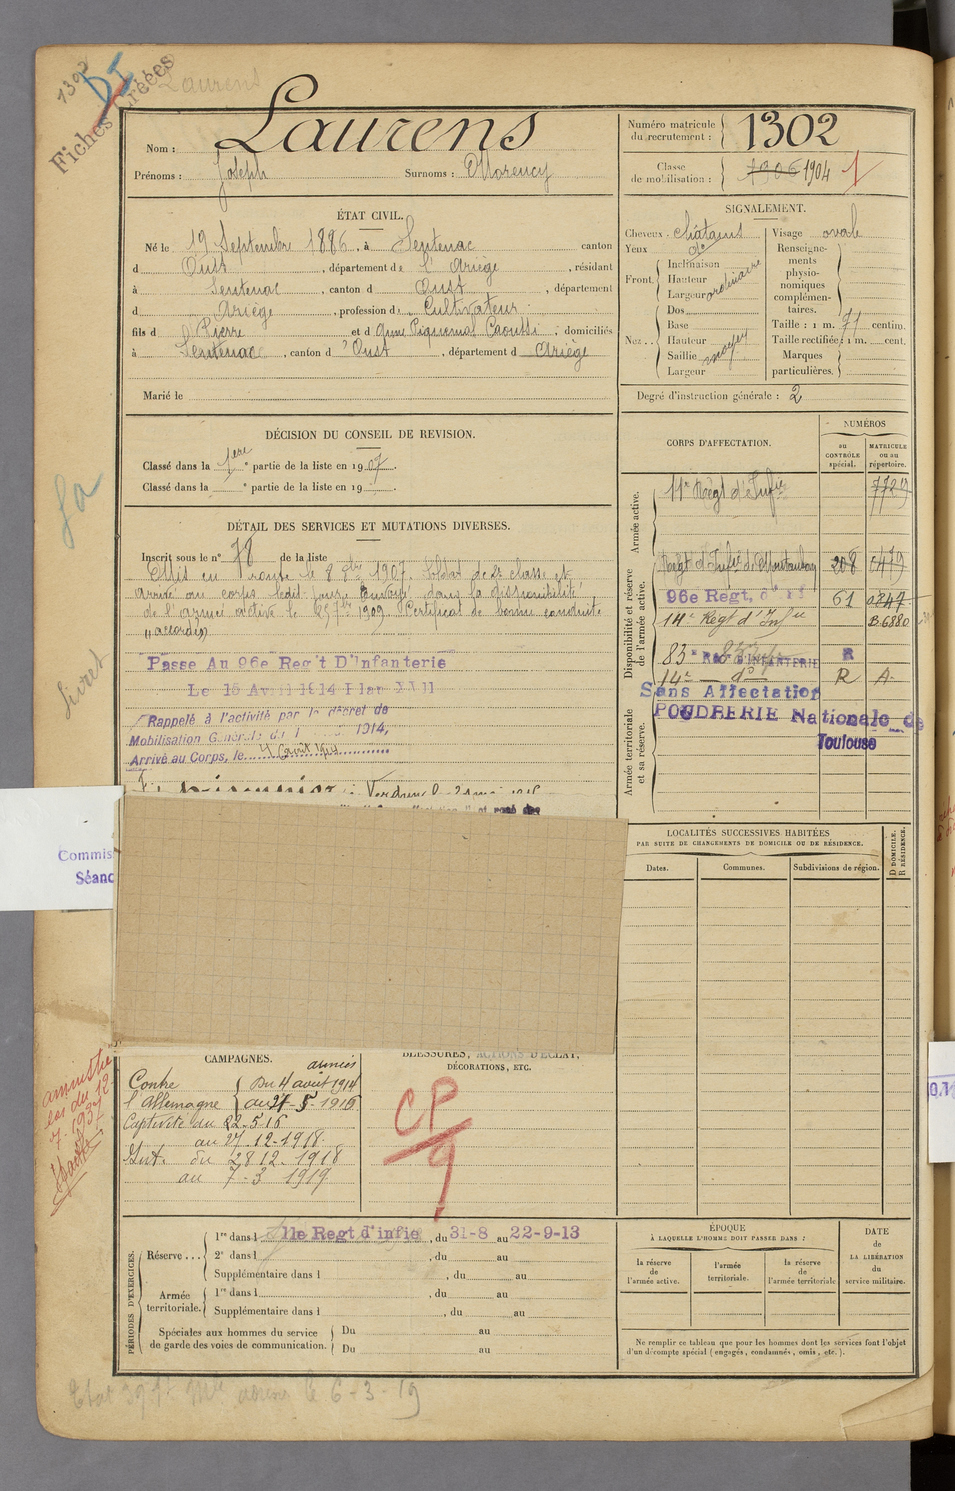 1302
DI
Laurens
Fiches créées
Nom : Laurens
Prénoms : Joseph Surnoms : Morency
Numéro matricule du recrutement : 1302
Classe de mobilisation : 1906 1904 1
ÉTAT CIVIL.
Né le 19 Septembre 1886, à Sentenac canton
d Oust, département de l'Ariège, résidant
à Sentenac, canton d Oust, département
d Ariège, profession de Cultivateur
fils d Pierre et d Anne Piquemal Caoussi, domiciliés
à Sentenac, canton d'Oust, département d Ariège
Marié le
SIGNALEMENT.
Cheveux châtains Visage ovale
Yeux do
Front. Inclinaison
Hauteur
Largeur ordinaire
Nez . . Dos
Base
Hauteur
Saillie moyen
Largeur
Renseignements physionomiques complémentaires.
Taille : 1 m. 71 centim.
Taille rectifiée : 1 m. cent.
Marques particulières.
Degré d'instruction générale : 2
DÉCISION DU CONSEIL DE REVISION.
Classé dans la 1ère partie de la liste en 1907.
Classé dans la e partie de la liste en 19
DÉTAIL DES SERVICES ET MUTATIONS DIVERSES.
Inscrit sous le n° 78 de la liste
Mis en route le 8 8bre 1907. Soldat de 2e classe et
arrivé au corps ledit jour. Envoyé dans la disponibilité
de l'armée active le 25 7bre 1909. Certificat de bonne conduite
"accordé"
Passe Au 96e Reg't D'Infanterie
Le 15 Avril 1914 Plan XVII
Rappelé à l'activité par le décret de
Mobilisation Générale du 1 1914,
Arrivé au Corps, le 4 août 1914
CORPS D'AFFECTATION.
NUMÉROS
au CONTRÔLE spécial.
MATRICULE ou au répertoire.
Armée active.
11e Régt d'Infie 7729
Disponibilité et réserve de l'armée active.
Régt d'Infie de Montauban 208 0479
96e Regt, 61 0247
14e Régt d'Infie B.6880
83e REGT D'INFANTERIE R
14e — do R A
Sans Affectation
POUDRERIE Nationale de
Toulouse
Armée territoriale et sa réserve.
LOCALITÉS SUCCESSIVES HABITÉES
PAR SUITE DE CHANGEMENTS DE DOMICILE OU DE RÉSIDENCE.
Dates. Communes. Subdivisions de région.
D DOMICILE. R RÉSIDENCE.
Livret
Commis
Séanc
CAMPAGNES.
Contre l'Allemagne
armées
Du 4 août 1914
au 21-5-1916
Captivité du 22.5.16
au 27.12.1918
Int. du 28 12.1918
au 7-3 1919
BLESSURES, ACTIONS D'ÉCLAT,
DÉCORATIONS, ETC.
CP
9
amnistie
loi du 12
7.1937
PÉRIODES D'EXERCICES.
Réserve . . .
1re dans l 11e Regt d'infie, du 31-8 au 22-9-13
2e dans l , du au
Supplémentaire dans l , du au
Armée territoriale.
1re dans l , du au
Supplémentaire dans l , du au
Spéciales aux hommes du service de garde des voies de communication.
Du au
Du au
ÉPOQUE
À LAQUELLE L'HOMME DOIT PASSER DANS :
la réserve de l'armée active.
l'armée territoriale.
la réserve de l'armée territoriale
DATE
de
LA LIBÉRATION
du
service militaire.
Ne remplir ce tableau que pour les hommes dont les services font l'objet
d'un décompte spécial (engagés, condamnés, omis, etc.).
le 6-3-19